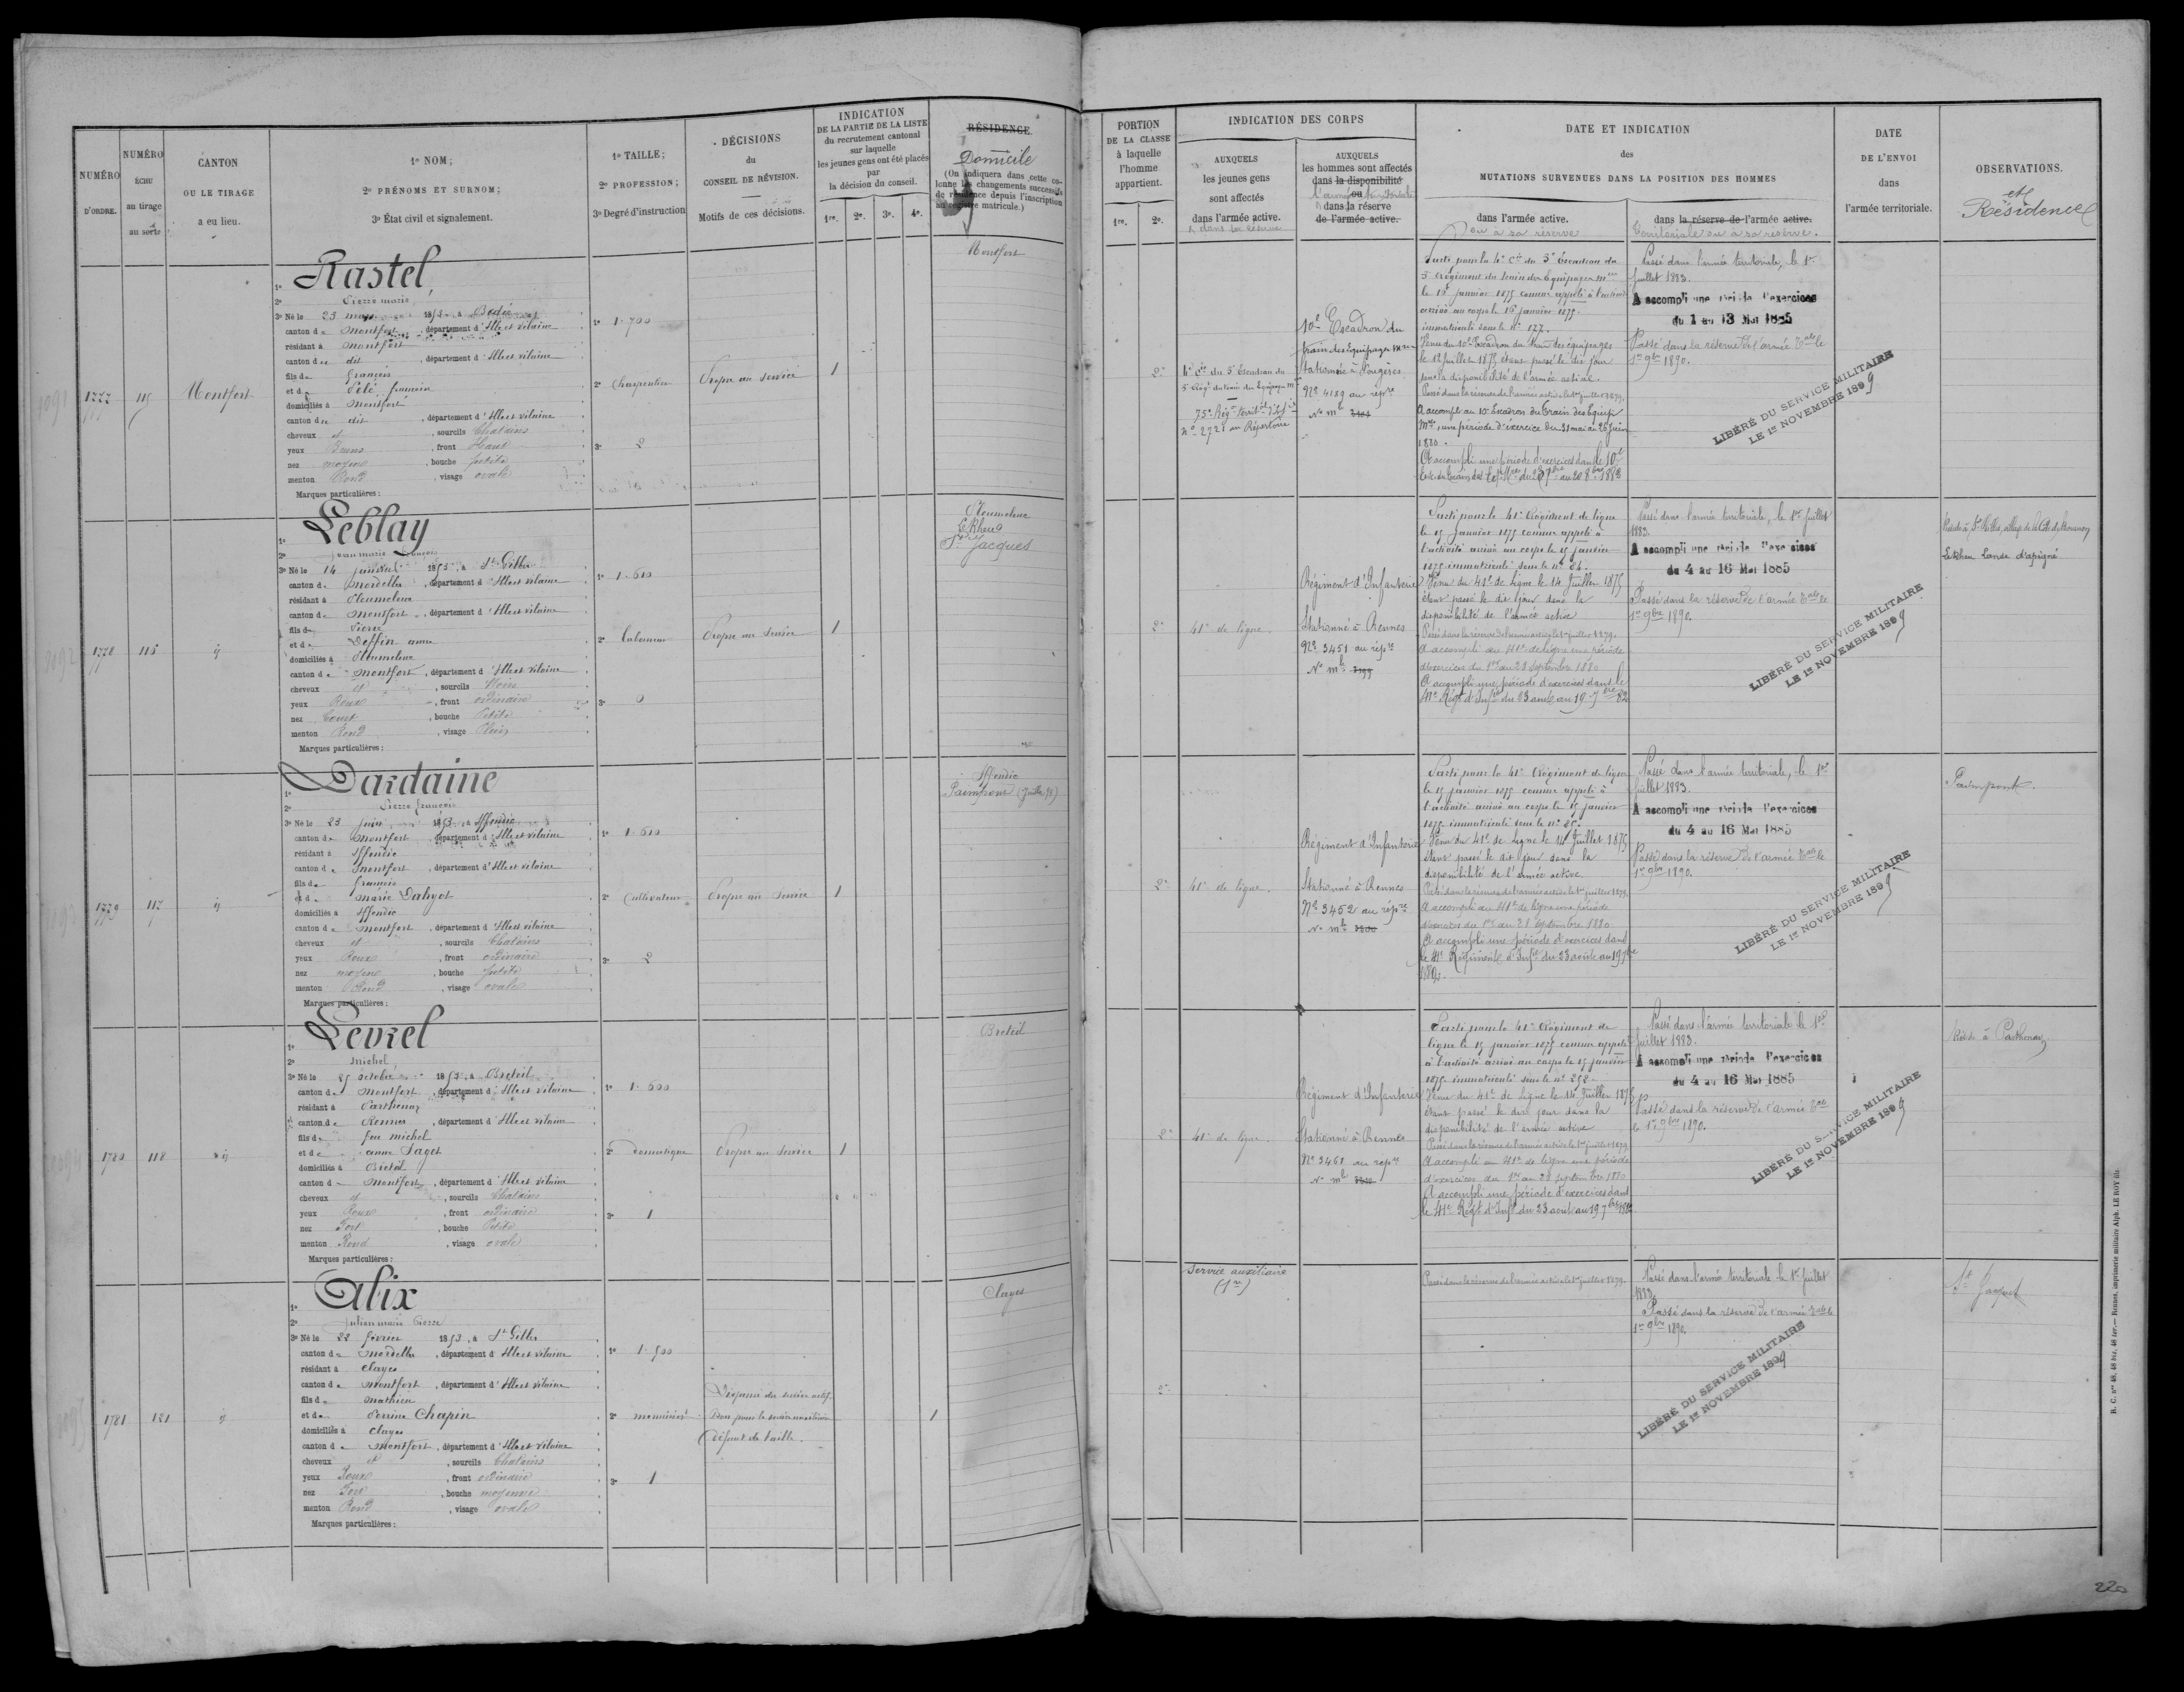 NUMÉRO
D'ORDRE.
NUMÉRO
ÉCHU
au tirage
au sort
CANTON
OU LE TIRAGE
a eu lieu.
1º NOM;
2º PRÉNOMS ET SURNOM;
3º État civil et signalement.
1º TAILLE;
2º PROFESSION;
3º Degré d'instruction
DÉCISIONS
du
CONSEIL DE RÉVISION.
Motifs de ces décisions.
INDICATION
DE LA PARTIE DE LA LISTE
du recrutement cantonal
sur laquelle
les jeunes gens ont été placés
par
la décision du conseil.
1re. 2e. 3e. 4e.
RÉSIDENCE.
Domicile
(On indiquera dans cette co-
lonne les changements successifs
de résidence depuis l'inscription
au registre matricule.)
1777
115
Montfort
Rastel,
2º Pierre marie
3º Né le 23 mars 1853, à Bédée
canton de Montfort, département d'Ille et vilaine
résidant à montfort
canton de dit, département d'Ille et vilaine
fils de françois
et de
domiciliés à montfort
canton de dit, département d'Ille et vilaine
cheveux et, sourcils Chatains
yeux Bruns, front Haut
nez moyen, bouche petite
menton Rond, visage ovale
Marques particulières :
1º 1.700
2º Charpentier
3º 2
Propre au service
1
Montfort
1778
116
id
Leblay
2º Jean marie François
3º Né le 14 1853, à St Gilles
canton de Mordelles, département d'Ille et vilaine
résidant à Pleumeleuc
canton de Montfort, département d'Ille et vilaine
fils de Pierre
et de anne
domiciliés à Pleumeleuc
canton de Montfort, département d'Ille et vilaine
cheveux et, sourcils Noirs
yeux Roux, front ordinaire
nez Court, bouche Petite
menton Rond, visage Plein
Marques particulières :
1º 1.610
2º Laboureur
3º 0
Propre au service
1
Pleumeleuc
Le Rheu
St Jacques
1779
117
id
Dardaine
2º Pierre françois
3º Né le 23 juin 1853, à Iffendic
canton de Montfort, département d'Ille et vilaine
résidant à Iffendic
canton de Montfort, département d'Ille et vilaine
fils de françois
et de marie Dahyot
domiciliés à Iffendic
canton de Montfort, département d'Ille et vilaine
cheveux et, sourcils Chatains
yeux Roux, front ordinaire
nez moyen, bouche petite
menton Rond, visage ovale
Marques particulières :
1º 1.610
2º Cultivateur
3º 2
Propre au service
1
Iffendic
Paimpont
1780
118
id
Levrel
2º michel
3º Né le 25 octobre 1853, à Breteil
canton de Montfort, département d'Ille et vilaine
résidant à Parthenay
canton de Rennes, département d'Ille et vilaine
fils de feu michel
et de anne Saget
domiciliés à Breteil
canton de Montfort, département d'Ille et vilaine
cheveux et, sourcils Chatains
yeux Roux, front ordinaire
nez Fort, bouche Petite
menton Rond, visage ovale
Marques particulières :
1º 1.600
2º domestique
3º 1
Propre au service
1
Breteil
1781
121
id
Alix
2º Julien marie Pierre
3º Né le 22 février 1853, à St Gilles
canton de Mordelles, département d'Ille et vilaine
résidant à clayes
canton de Montfort, département d'Ille et vilaine
fils de mathieu
et de Perrine Chapin
domiciliés à clayes
canton de Montfort, département d'Ille et vilaine
cheveux et, sourcils Chatains
yeux Roux, front ordinaire
nez Fort, bouche moyenne
menton Rond, visage ovale
Marques particulières :
1º 1.500
2º menuisier
3º 1
Dispensé du service actif
Bon pour le service auxiliaire
Défaut de taille.
1
Clayes
PORTION
DE LA CLASSE
à laquelle
l'homme
appartient.
1re. 2e.
INDICATION DES CORPS
AUXQUELS
les jeunes gens
sont affectés
dans l'armée active.
& dans la réserve
AUXQUELS
les hommes sont affectés
dans la disponibilité
ou
l'armée territoriale
dans la réserve
de l'armée active.
DATE ET INDICATION
des
MUTATIONS SURVENUES DANS LA POSITION DES HOMMES
dans l'armée active.
ou à sa réserve
dans la réserve de l'armée active.
territoriale ou à sa réserve.
DATE
DE L'ENVOI
dans
l'armée territoriale.
OBSERVATIONS.
et
Résidence
2e
4e Cie du 5e Escadron du
5e Régt du train des Equipages mres
75e Régt territ d'Infie
nº 2721 au Répertoire
10e Escadron du
train des Equipages mres
Stationné à Fougères
Nº 4189 au répre
Nº mle
Parti pour la 4e Cie du 5e Escadron du
5e Régiment du train des Equipages mres
le 15 janvier 1875 comme appelé à l'activité
arrivé au corps le 16 janvier 1875.
immatriculé sous le nº 177.
Venu du 10e Escadron du train des équipages
le 12 juillet 1875 étant passé le dit jour
dans la disponibilité de l'armée active.
Passé dans la réserve de l'armée active le 1er juillet 1879.
A accompli au 10e Escadron du Train des Equip.
Mres, une période d'exercice du 31 mai au 26 juin
1880.
A accompli une période d'exercices dans le 10e
Passé dans l'armée territoriale, le 1er
juillet 1883.
A accompli une période d'exercices
du 1 au 13 Mai 1885
Passé dans la réserve de l'armée Tale le
1er 9bre 1890.
LIBÉRÉ DU SERVICE MILITAIRE
LE 1er NOVEMBRE 1899
2e
41e de ligne.
Régiment d'Infanterie
Stationné à Rennes
Nº 3451 au répre
Nº mle 3199
Parti pour le 41e Régiment de ligne
le 15 janvier 1875 comme appelé à
l'activité arrivé au corps le 15 janvier
1875 immatriculé sous le nº 24.
Venu du 41e de Ligne le 14 Juillet 1875
étant passé le dit jour dans la
disponibilité de l'armée active
Passé dans la réserve de l'armée active le 1er juillet 1879.
A accompli au 41e de ligne une période
d'exercices du 1er au 28 Septembre 1880
A accompli une période d'exercices dans le
41e Régt d'Infie du 23 août au 19 7bre 82
Passé dans l'armée territoriale, le 1er juillet
1883.
A accompli une période d'exercices
du 4 au 16 Mai 1885
Passé dans la réserve de l'armée Tale le
1er 9bre 1890.
LIBÉRÉ DU SERVICE MILITAIRE
LE 1er NOVEMBRE 1899
Le Rheu Lande d'apigné
2e
41e de ligne.
Régiment d'Infanterie
Stationné à Rennes
Nº 3452 au répre
Nº mle 3200
Parti pour le 41e Régiment de ligne
le 15 janvier 1875 comme appelé à
l'activité arrivé au corps le 15 janvier
1875 immatriculé sous le nº 25.
Venu du 41e de Ligne le 14 Juillet 1875
étant passé le dit jour dans la
disponibilité de l'armée active.
Passé dans la réserve de l'armée active le 1er juillet 1879.
A accompli au 41e de ligne une période
d'exercices du 1er au 28 septembre 1880.
A accompli une période d'exercices dans
le 41e Régiment d'Infie du 23 août au 19 7bre
1882.
Passé dans l'armée territoriale, le 1er
juillet 1883.
A accompli une période d'exercices
du 4 au 16 Mai 1885
Passé dans la réserve de l'armée Tale le
1er 9bre 1890.
LIBÉRÉ DU SERVICE MILITAIRE
LE 1er NOVEMBRE 1899
Paimpont.
2e
41e de ligne.
Régiment d'Infanterie
Stationné à Rennes
Nº 3461 au répre
Nº mle
Parti pour le 41e Régiment de
ligne le 15 janvier 1875 comme appelé
à l'activité arrivé au corps le 15 janvier
1875 immatriculé sous le nº 252.
Venu du 41e de Ligne le 14 Juillet 1875
étant passé le dit jour dans la
disponibilité de l'armée active
Passé dans la réserve de l'armée active le 1er juillet 1879.
A accompli au 41e de ligne une période
d'exercices du 1er au 28 septembre 1880
A accompli une période d'exercices dans
le 41e Régt d'Infie du 23 août au 19 7bre 1882
Passé dans l'armée territoriale le 1er
juillet 1883.
A accompli une période d'exercices
du 4 au 16 Mai 1885
Passé dans la réserve de l'armée Tale
le 1er 9bre 1890.
LIBÉRÉ DU SERVICE MILITAIRE
LE 1er NOVEMBRE 1899
Réside à Parthenay
2e
Service auxiliaire
Passé dans la réserve de l'armée active le 1er juillet 1879.
Passé dans l'armée territoriale le 1er juillet
1883.
Passé dans la réserve de l'armée Tale le
1er 9bre 1890.
LIBÉRÉ DU SERVICE MILITAIRE
LE 1er NOVEMBRE 1899
St Jacques
220